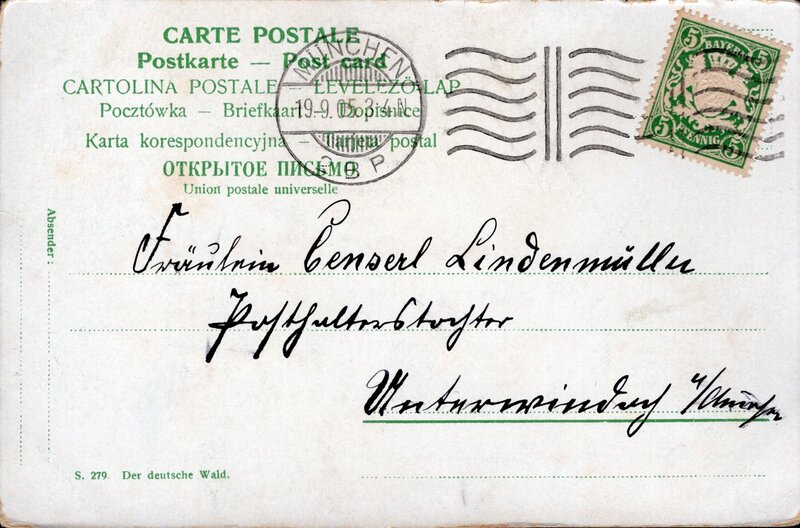 CARTE POSTALE
Postkarte — Post card
CARTOLINA POSTALE — LEVELEZŐ-LAP
Pocztówka — Briefkaart — Dopisnice
Karta korespondencyjna — Tarjeta postal
ОТКРЫТОЕ ПИСЬМО
Union postale universelle
MÜNCHEN
19.9.05.3-4N
2 B P
5 5
BAYERN
PFENNIG
5 5
Absender:
Fräulein Censerl Lindenmüller
Posthalterstochter
Unterwindach
S. 279. Der deutsche Wald.